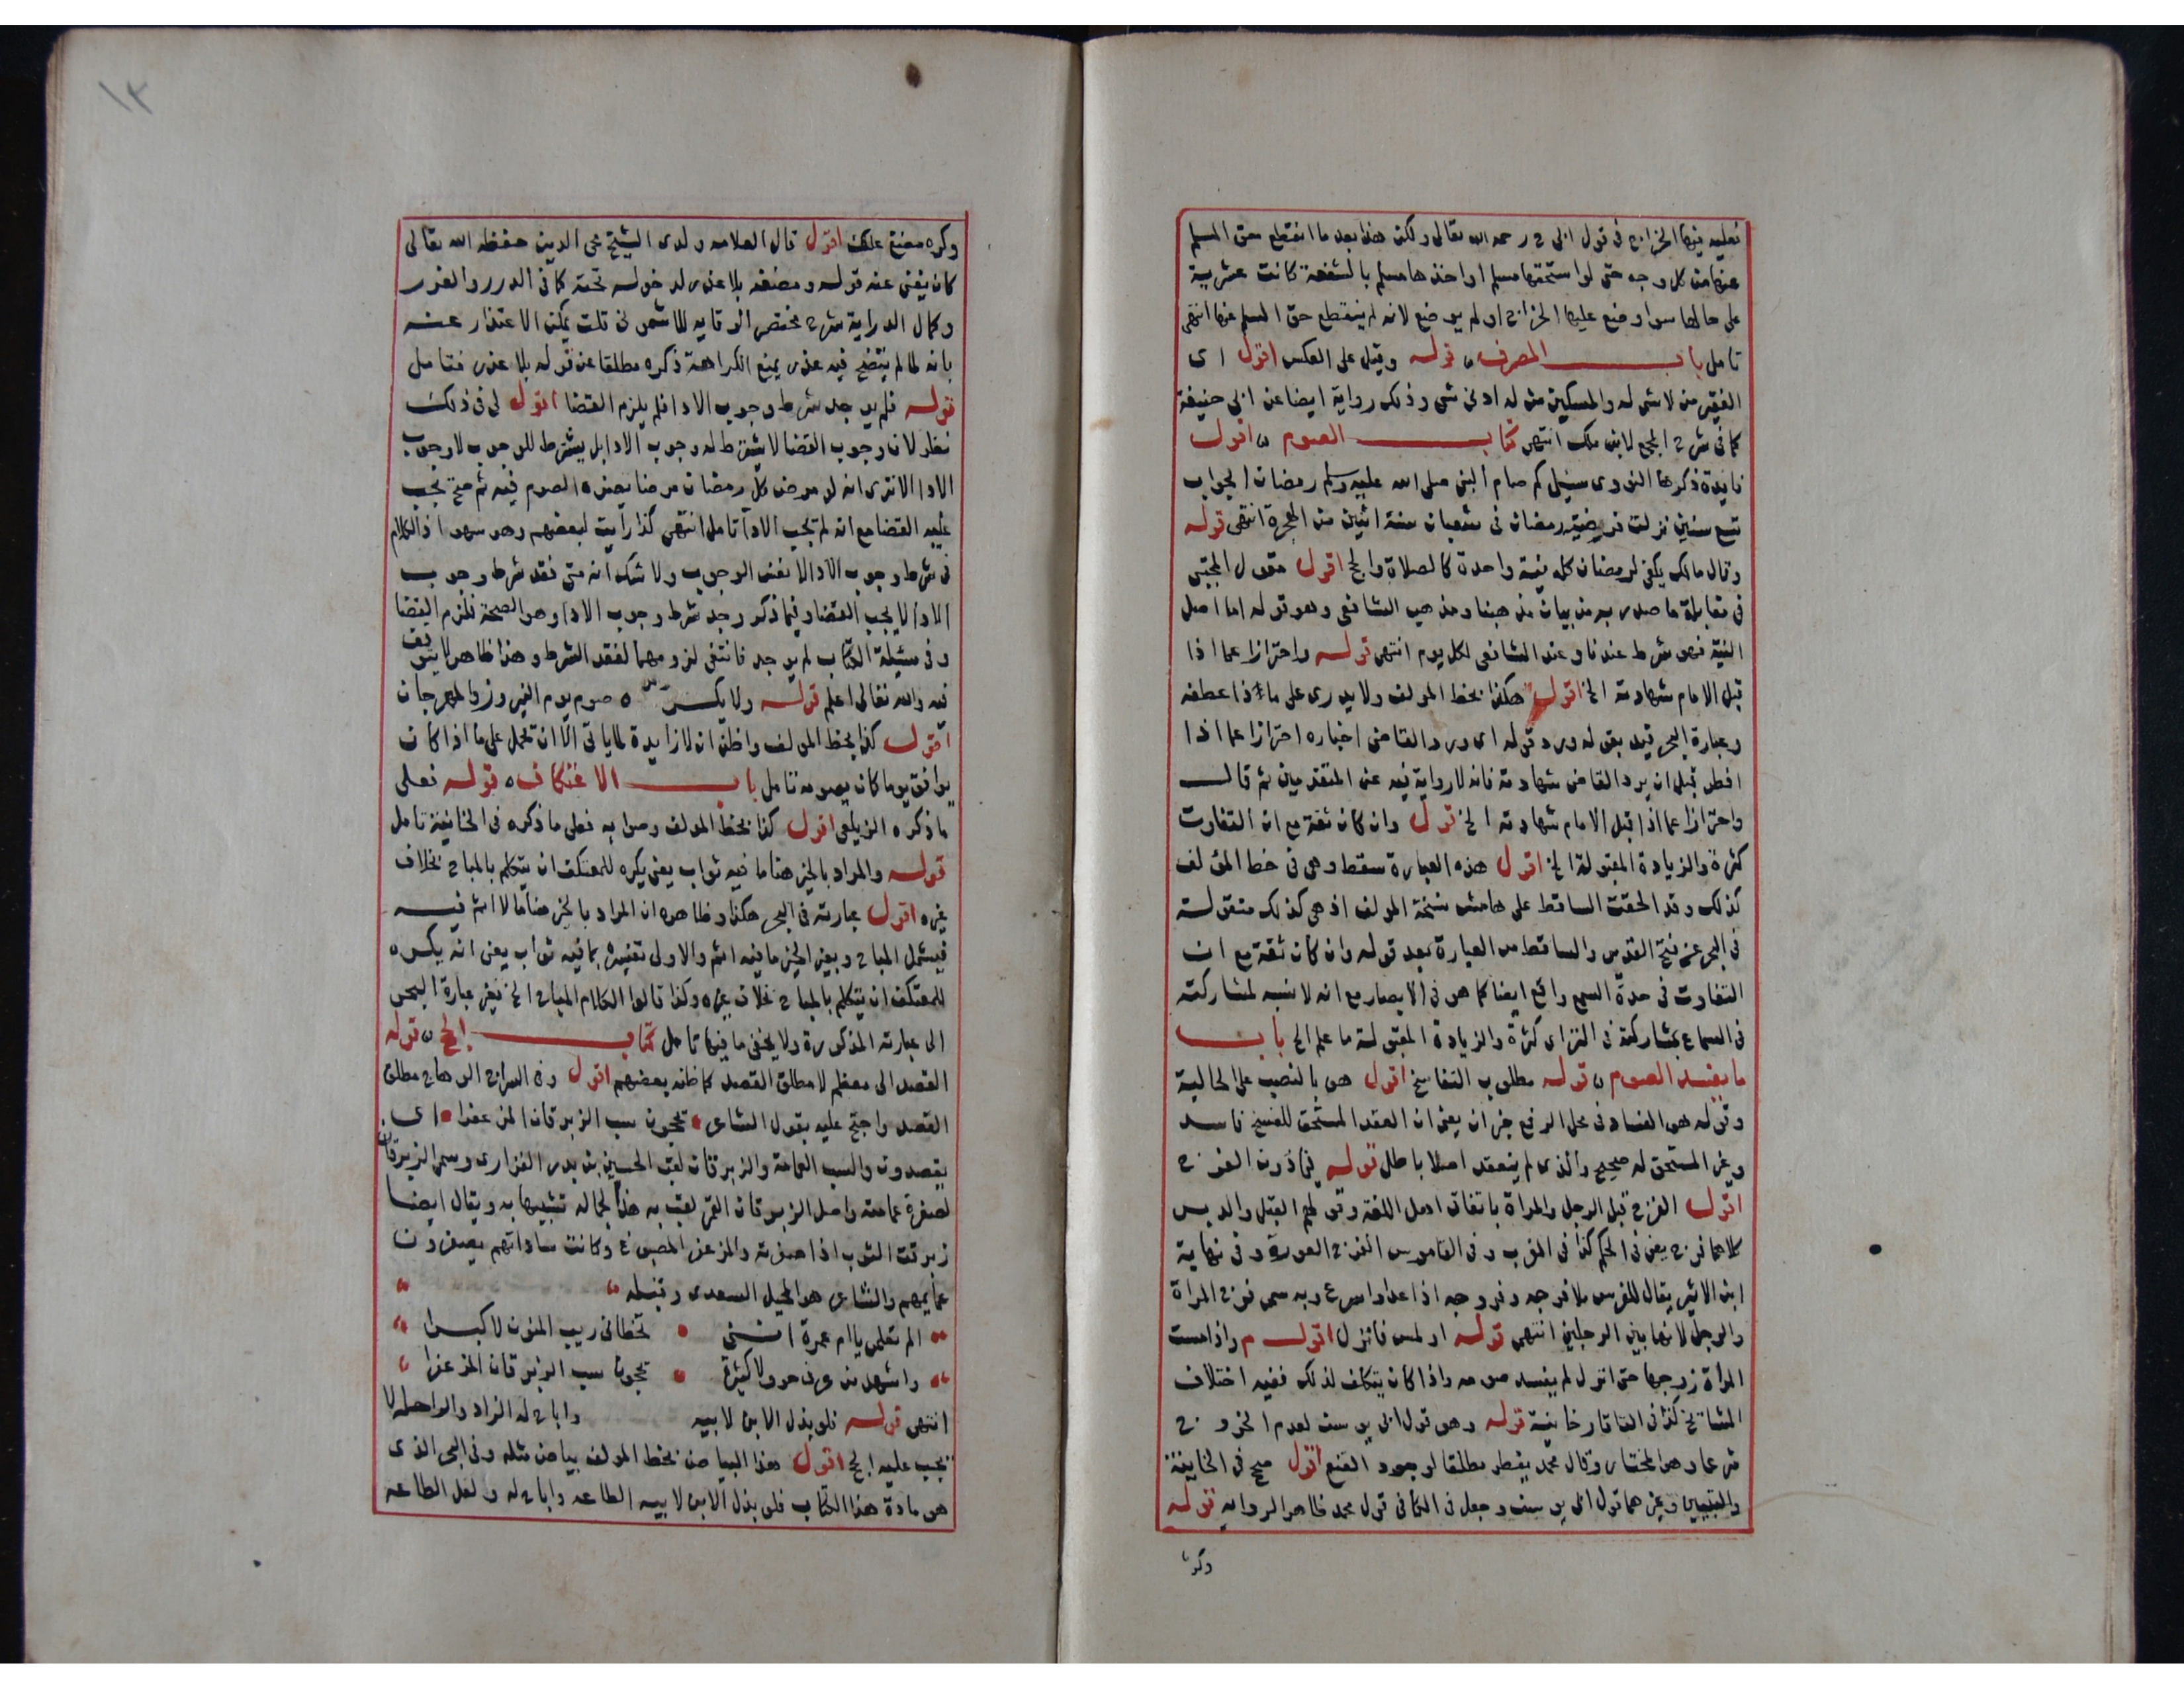 فعليه فيها الخراج في قول ابى ح رحمه الله تعالى ولكن هذا بعد ما انقطع حق المسلم
عنها من كل وجه حتى لو استحقها مسلم او اخذها مسلم بالشفعة كانت عشرية
على حالها سوا وضع عليها الخراج او لم يوضع لانه لم ينقطع حق المسلم عنها انتهى
تامل باب المصرف قوله وقيل على العكس اقول اى
الفقير من لا شى له والمسكين من له ادنى شى وذلك رواية ايضا عن ابى حنيفة
كما فى شرح المجمع لابن ملك انتهى كتاب الصوم اقول
فايدة ذكرها النووى سئل كم صام النبى صلى الله عليه وسلم رمضان الجواب
تسع سنين نزلت فريضة رمضان فى شعبان سنة اثنين من الهجرة انتهى قوله
وقال مالك يكفى لرمضان كله نية واحدة كالصلاة والحج اقول مقول المجتبى
فى مقابلة ما صدر به من بيان مذهبنا ومذهب الشافعى وهو قوله اما اصل
النية فهو شرط عندنا وعند الشافعى لكل يوم انتهى قوله واحترازا عما اذا
قبل الامام شهادته الخ اقول هكذا بخط المولف ولا يدرى على ماذا عطفه
وعبارة البحر قيد بقوله ورد قوله اى ورد القاضى اخباره احترازا عما اذا
افطر قبل ان يرد القاضى شهادته فانه لا رواية فيه عن المتقدمين ثم قال
واحترازا عما اذا قبل الامام شهادته الخ قول وان كان ثقة مع ان التفاوت
كثرة والزيادة المقبولة الخ اقول هذه العبارة سقط وهى فى خط المؤلف
كذلك وقد الحقت الساقط على هامش نسخة المولف اذ هى كذلك منقولة
فى البحر عن فتح القدير والساقط من العبارة بعد قوله وان كان ثقة مع ان
التفاوت فى حدة السمع واقع ايضا كما هو فى الابصار مع انه لا نسبه لمشاركته
فى السماع بمشاركته فى التراى كثرة والزيادة المقبولة ما علم الخ باب
ما يفسد الصوم قوله مطلوب التفاسخ اقول هو بالنصب على الحالية
وقوله هو الفساد فى محل الرفع خبر ان يعنى ان العقد المستحق للفسخ فاسد
وغير المستحق له صحيح والذى لم ينعقد اصلا باطل قوله فيما دون الفرج
اقول الفرج قبل الرجل والمراة باتفاق اهل اللغة وقولهم القبل والدبر
كلاهما فرج يعنى فى الحكم كذا فى المغرب وفى القاموس الفرج العورة وفى نهاية
ابن الاثير يقال للفرس ملا فرجه وفروجه اذا عدا واسرع وبه سمى فرج المراة
والرجل لانها بين الرجلين انتهى قوله او لمس فانزل اقول م واذا مست
المراة زوجها حتى انزل لم يفسد صومه واذا كان يتكلف لذلك ففيه اختلاف
المشايخ كذا فى التاتارخانية قوله وهو قول ابى يوسف لعدم الخروج
شرعا وهو المختار وقال محمد يفطر مطلقا لوجود القنع اقول صح فى الخانية
والتبيين وغيرهما قول ابى يوسف وجعل فى الكافى قول محمد ظاهر الرواية قوله
وكره
١٢
وكره مضغ علك اقول قال العلامه ولدى الشيخ محى الدين حفظه الله تعالى
كان يغنى عنه قوله ومضغه بلا عذر لدخوله تحته كما فى الدرر والغرر
وكمال الدراية شرح مختصر الوقايه للشمنى قلت يمكن الاعتذار عنه
بانه لما لم يتضح فيه عذر يمنع الكراهة ذكره مطلقا عن قوله بلا عذر فتامل
قوله فلم يوجد شرط وجوب الادا فلم يلزم القضا اقول لى فى ذلك
نظر لان وجوب القضا لا يشترط له وجوب الادا بل يشترط للوجوب لا وجوب
الادا الا ترى انه لو مرض كل رمضان مرضا يضره الصوم فيه ثم صح يجب
عليه القضا مع انه لم تجب الادآ تامل انتهى كذا رأيت لبعضهم وهو سهو اذ الكلام
فى شرط وجوب الادا لا نفس الوجوب ولا شك انه متى فقد شرط وجوب
الادا لا يجب القضا وفيما ذكر وجد شرط وجوب الادا وهو الصحة فلزم القضا
وفى مسئلة الكتاب لم يوجد فانتفى لزومهما لفقد الشرط وهذا ظاهر لا يتوقف
فيه والله تعالى اعلم قوله ولا يكره صوم يوم النيروز والمهرجان
اقول كذا بخط المولف واظن ان لا زايدة لما ياتى الا ان تحمل على ما اذا كان
يوافق يوما كان يصومه تامل باب الاعتكاف قوله فعلى
ما ذكره الزيلعى اقول كذا بخط المولف وصوابه فعلى ما ذكره فى الخانية تامل
قوله والمراد بالخير هنا ما فيه ثواب يعنى يكره للمعتكف ان يتكلم بالمباح بخلاف
غيره اقول عبارته فى البحر هكذا وظاهره ان المراد بالخير هنا ما لا اثم فيه
فيشمل المباح وبغير الخير ما فيه اثم والاولى تفسيره بما فيه ثواب يعنى انه يكره
للمعتكف ان يتكلم بالمباح بخلاف غيره وكذا قالوا الكلام المباح الخ فغير عبارة البحر
الى عبارته المذكورة ولا يخفى ما فيها تامل كتاب الحج قوله
القصد الى معظم لا مطلق القصد كما ظنه بعضهم اقول وفى السراج الوهاج مطلق
القصد واحتج عليه بقول الشاعر يحجون سب الزبرقان المزعفرا اى
يقصدون والسب العمامة والزبرقان لقب الحسين بن بدر الفزارى وسمى الزبرقان
لصفرة عمامته واصل الزبرقان القمر لقب به هذا لجماله تشبيها به ويقال ايضا
زبرقت الثوب اذا صفرته والمزعفر المصبوغ وكانت ساداتهم يصفرون
عمايمهم والشاعر هو المخبل السعدى وقبله
الم تعلمى يا ام عمرة اننى تخطانى ريب المنون لاكبرا
واشهد من عوف حوولا كثيرة يحجون سب الزبرقان المزعفرا
انتهى قوله فلو بذل الابن لابيه واباح له الزاد والراحلة لا
يجب عليه الحج اقول هذا البياض بخط المولف بياض مثله وفى البحر الذى
هو مادة هذا الكتاب فلو بذل الابن لابيه الطاعه واباح له ولعل الطاعه